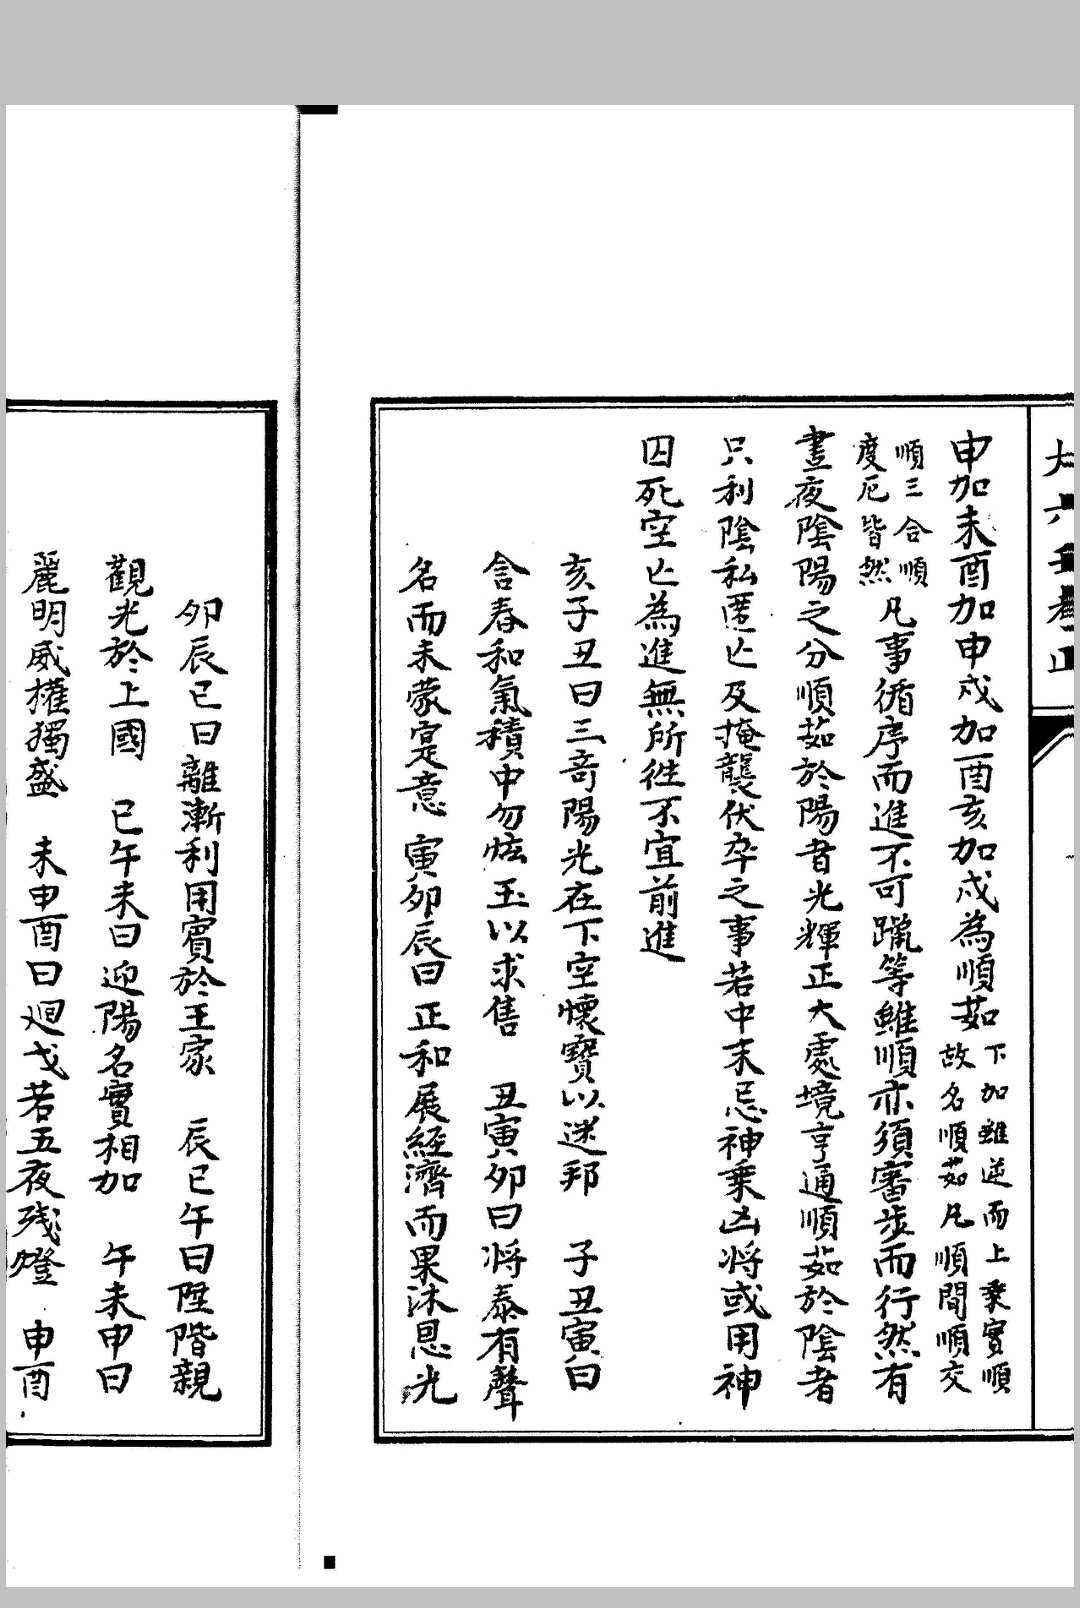 申加未酉加申戌加酉亥加戌為順茹
下加雖逆而上乗實順
故名順茹凡順間順交
順三合順
度厄皆然
凡事循序而進不可躐等雖順亦須審步而行然有
晝夜陰陽之分順茹於陽者光輝正大處境亨通順茹於陰者
只利陰私匿亡及掩襲伏弇之事若中末忌神乗凶将或用神
囚死空亡為進無所徃不宜前進
亥子丑曰三竒陽光在下空懷寶以迷邦　子丑寅曰
含春和氣積中勿炫玉以求售　丑寅夘曰将泰有聲
名而未蒙寔意　寅夘辰曰正和展經濟而果沐恩光
夘辰巳曰離漸利用賓於王家　辰巳午曰陞階親
觀光於上國　巳午未曰迎陽名實相加　午未申曰
麗明威權獨盛　未申酉曰廻戈若五夜残燈　申酉